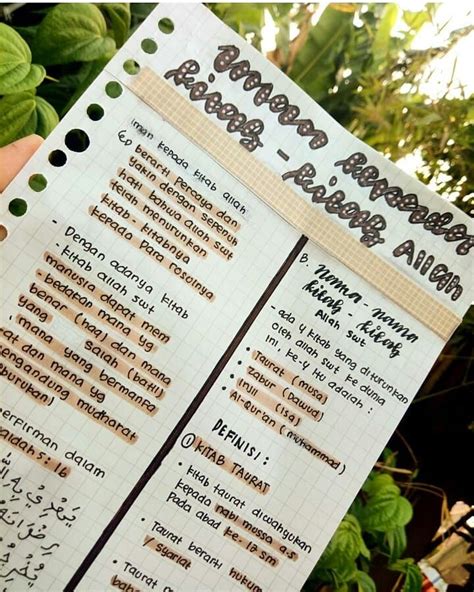 Iman Kepada
Kitab - Kitab Allah
Iman kepada kitab allah
↳ berarti percaya dan
yakin dengan sepenuh
hati bahwa allah swt
telah menurunkan
kitab - kitabnya
kepada para rosulnya
- Dengan adanya kitab
kitab allah swt
manusia dapat mem
- bedakan mana yg
benar (haq) dan mana
yang salah (batil)
mana yang bermanfa
at dan mana yg
mengandung mudharat
buruKan)
erfirman dalam
aidah 5: 16
B. Nama - nama
Kitab - Kitab
Allah swt
- ada 4 kitab yang diturunkan
oleh allah swt ke dunia
ini. ke-4 itu adalah :
• Taurat (musa)
• Zabur (Dawud)
• Injil (isa)
• Al-Qur'an (muhammad)
DEFINISI :
① KITAB TAURAT
• kitab taurat diwahyukan
kepada nabi mussa a.s
pada abad ke. 12 sm
• Taurat berarti hukum
/ syariat
• Taurat